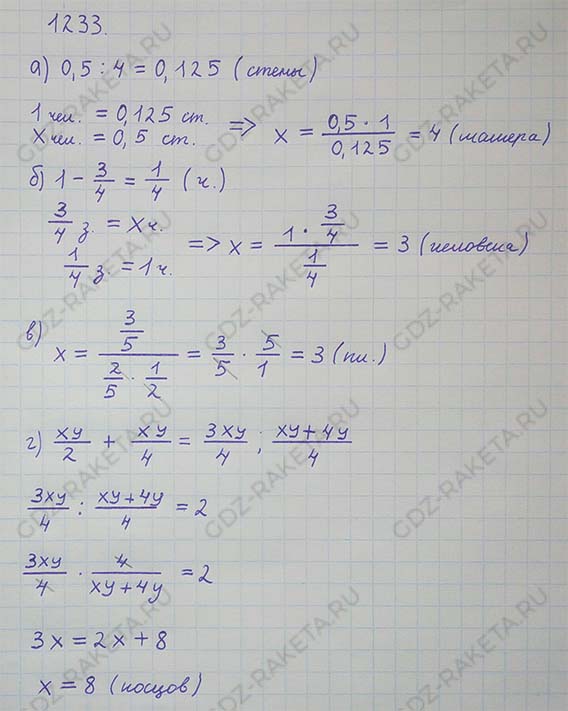 1233.
а) 0,5 : 4 = 0,125 (стены)
1 чел. = 0,125 ст.
x чел. = 0,5 ст. => x = (0,5 · 1)/(0,125) = 4 (маляра)
б) 1 - 3/4 = 1/4 (ч.)
3/4 з. = x ч.
1/4 з. = 1 ч. => x = (1 · 3/4)/(1/4) = 3 (человека)
в) x = (3/5)/(2/5 · 1/2) = 3/5 · 5/1 = 3 (пл.)
г) xy/2 + xy/4 = 3xy/4 ; (xy + 4y)/4
3xy/4 : (xy + 4y)/4 = 2
3xy/4 · 4/(xy + 4y) = 2
3x = 2x + 8
x = 8 (косцов)
GDZ-RAKETA.RU